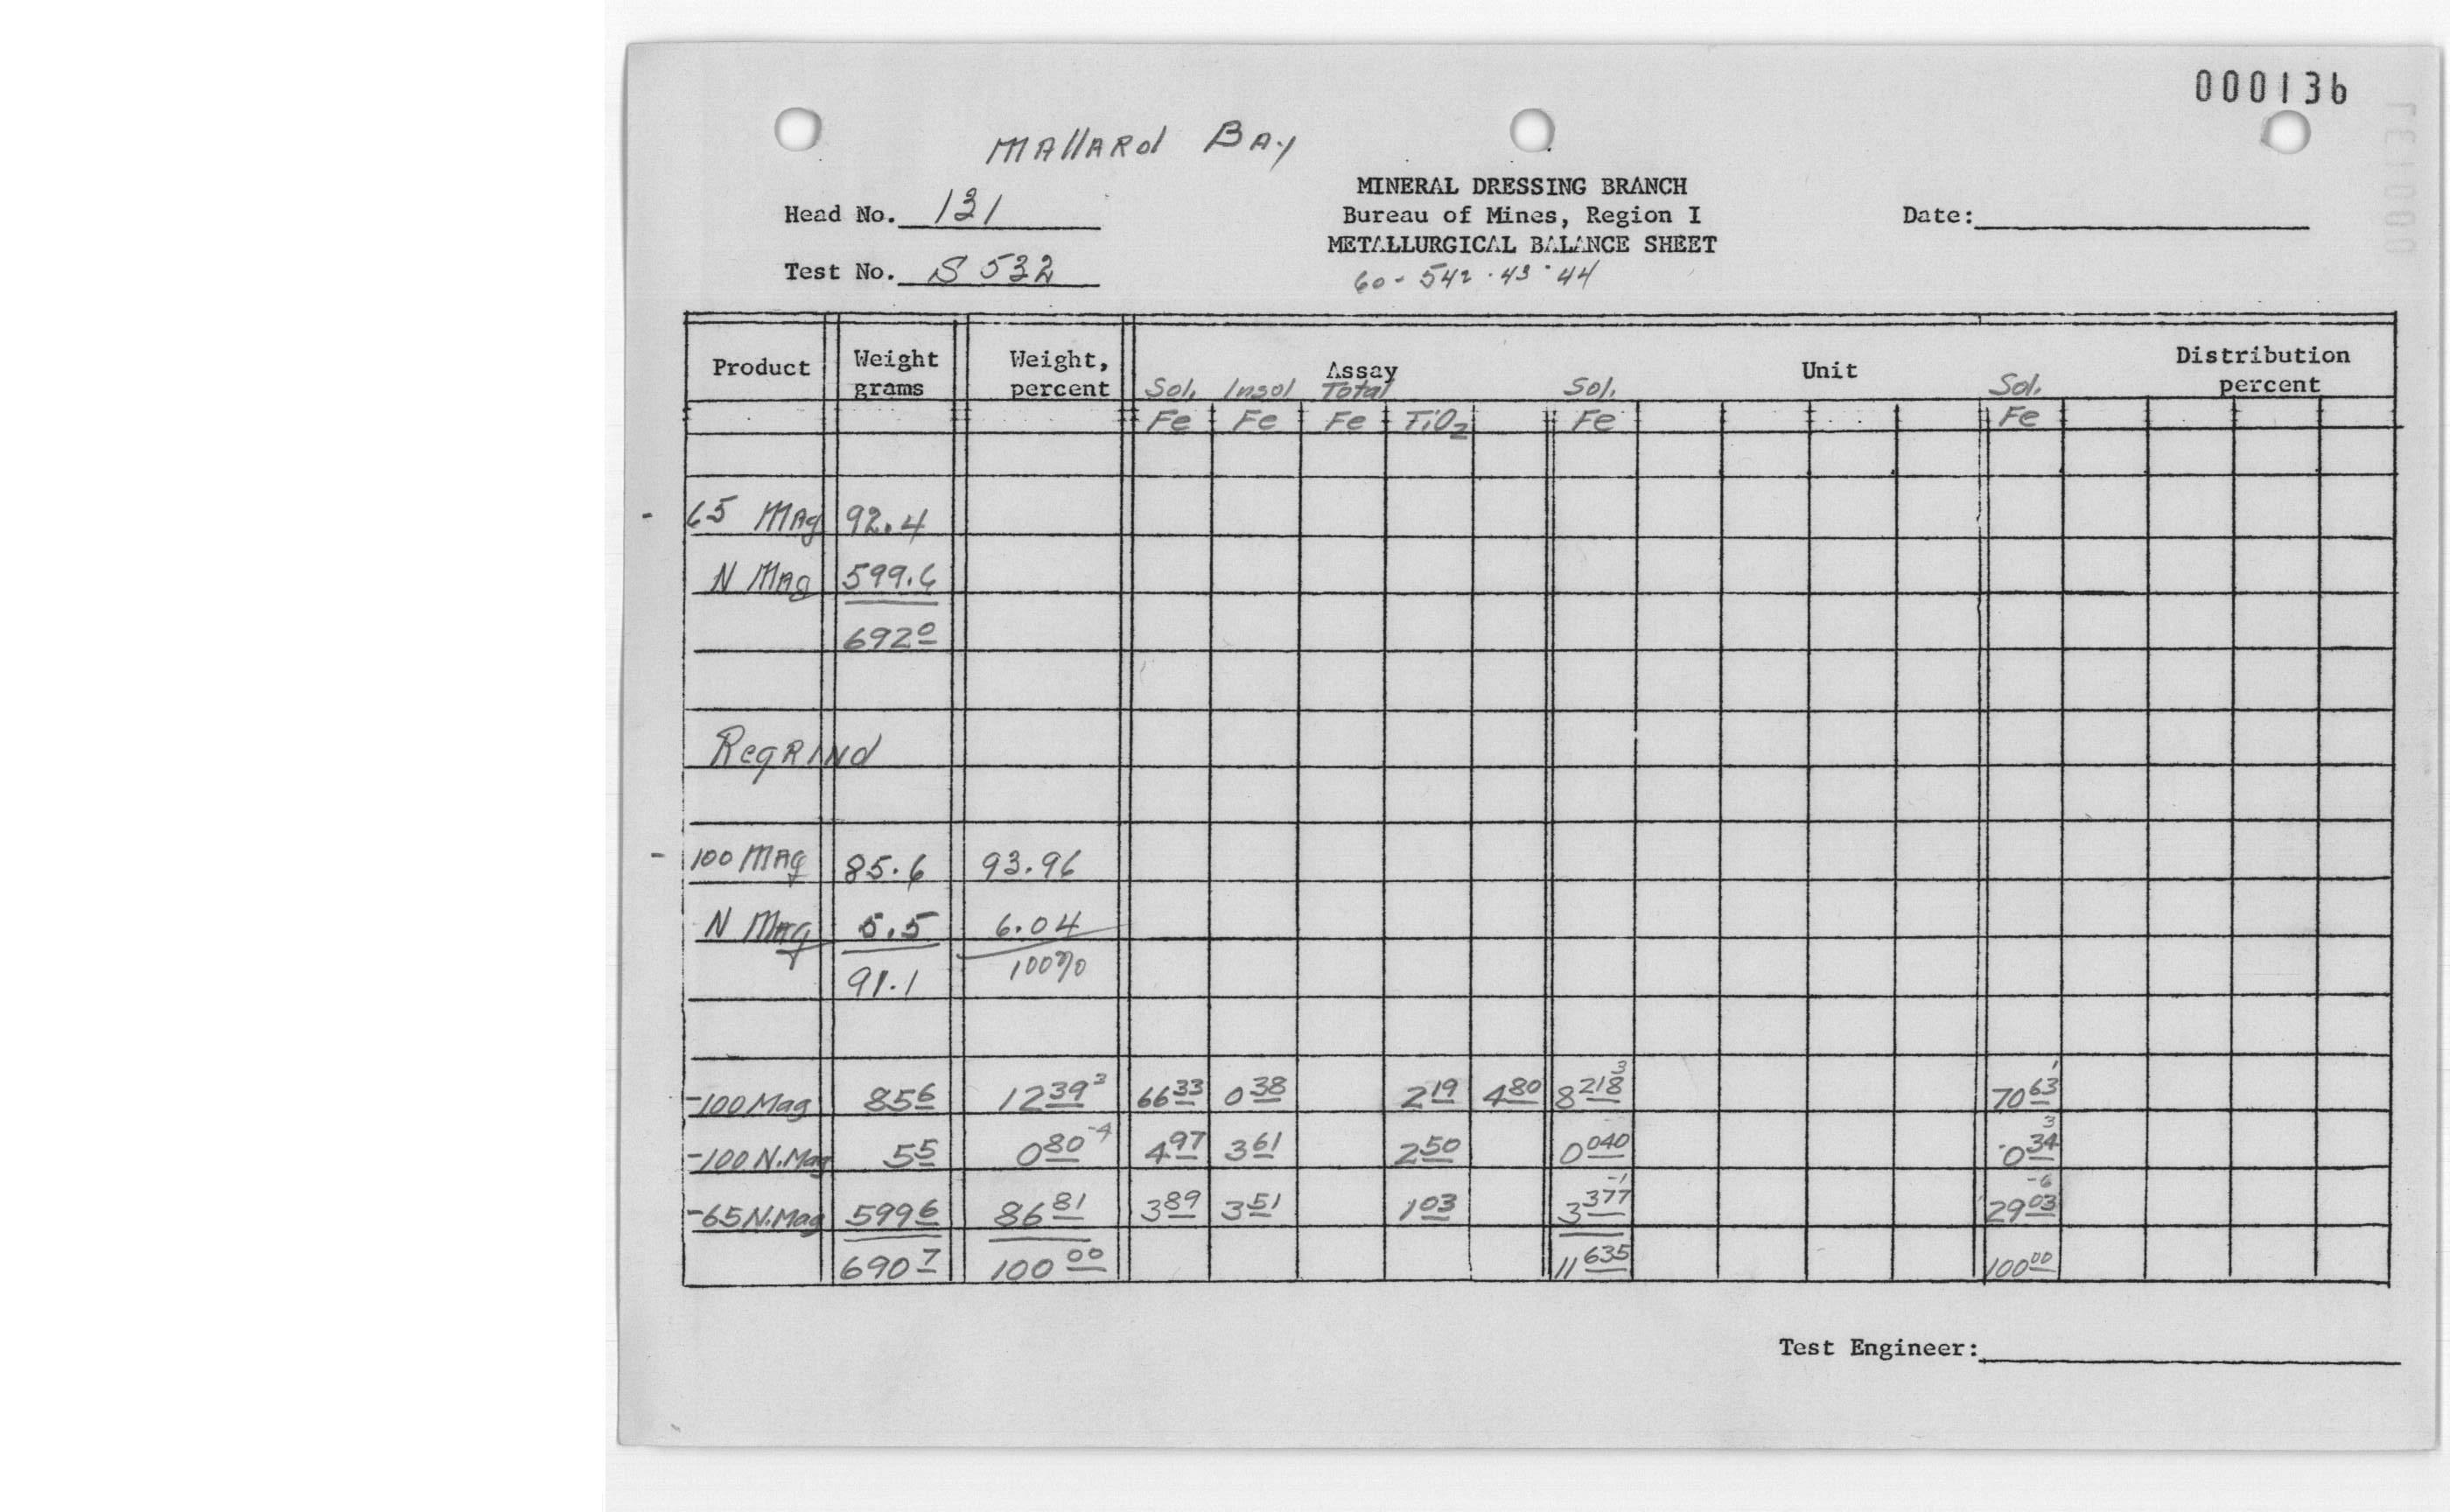 000136
Mallard Bay
MINERAL DRESSING BRANCH
Head No. 131 Bureau of Mines, Region I Date:
METALLURGICAL BALANCE SHEET
Test No. S 532
60-542-43-44
Product Weight grams Weight, percent Assay Unit Distribution percent
Sol. Fe Insol Fe Total Fe TiO2 Sol. Fe Sol. Fe
- 65 Mag 92.4
N Mag 599.6
692 0
Regrind
- 100 Mag 85.6 93.96
N Mag 5.5 6.04
91.1 100%
-100 Mag 85 6 12 39 3 66 33 0 38 2 19 4 80 8 218 3 70 63 1
-100 N.Mag 5 5 0 80 -4 4 97 3 61 2 50 0 040 0 34 3
-65 N.Mag 599 6 86 81 3 89 3 51 1 03 3 377 -1 29 03 -6
690 7 100 00 11 635 100 00
Test Engineer: